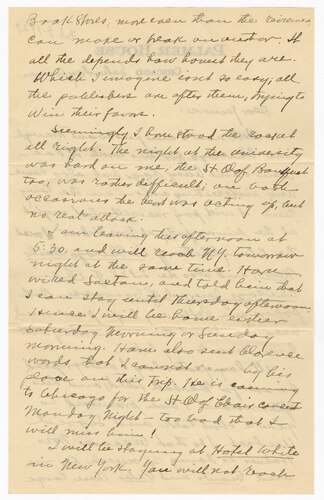 Book Stores, more even than the reviewers
can make or break an author. It
all the depends how honest they are.
Which I imagine isn't so easy; all
the publishers are after them, trying to
win their favor.
Seemingly I have stood the racket
all right. The night at the university
was hard on me, the St O of Banquet
too, was rather difficult; on both
occasions the heart was acting up, but
no real attack.
I am leaving this afternoon at
5:30, and will reach N.Y. tomorrow
night at the same time. Have
wired Saxton, and told him that
I can stay until Thursday afternoon.
Hence I will be home either
Saturday Morning or Sunday
morning. Have also sent Clarence
word, that I cannot by his
place on this trip. He is coming
to Chicago for the St O of Ebair concert
Monday Night – too bad that I
will miss him!
I will be staying at Hotel White
in New York. You will not reach